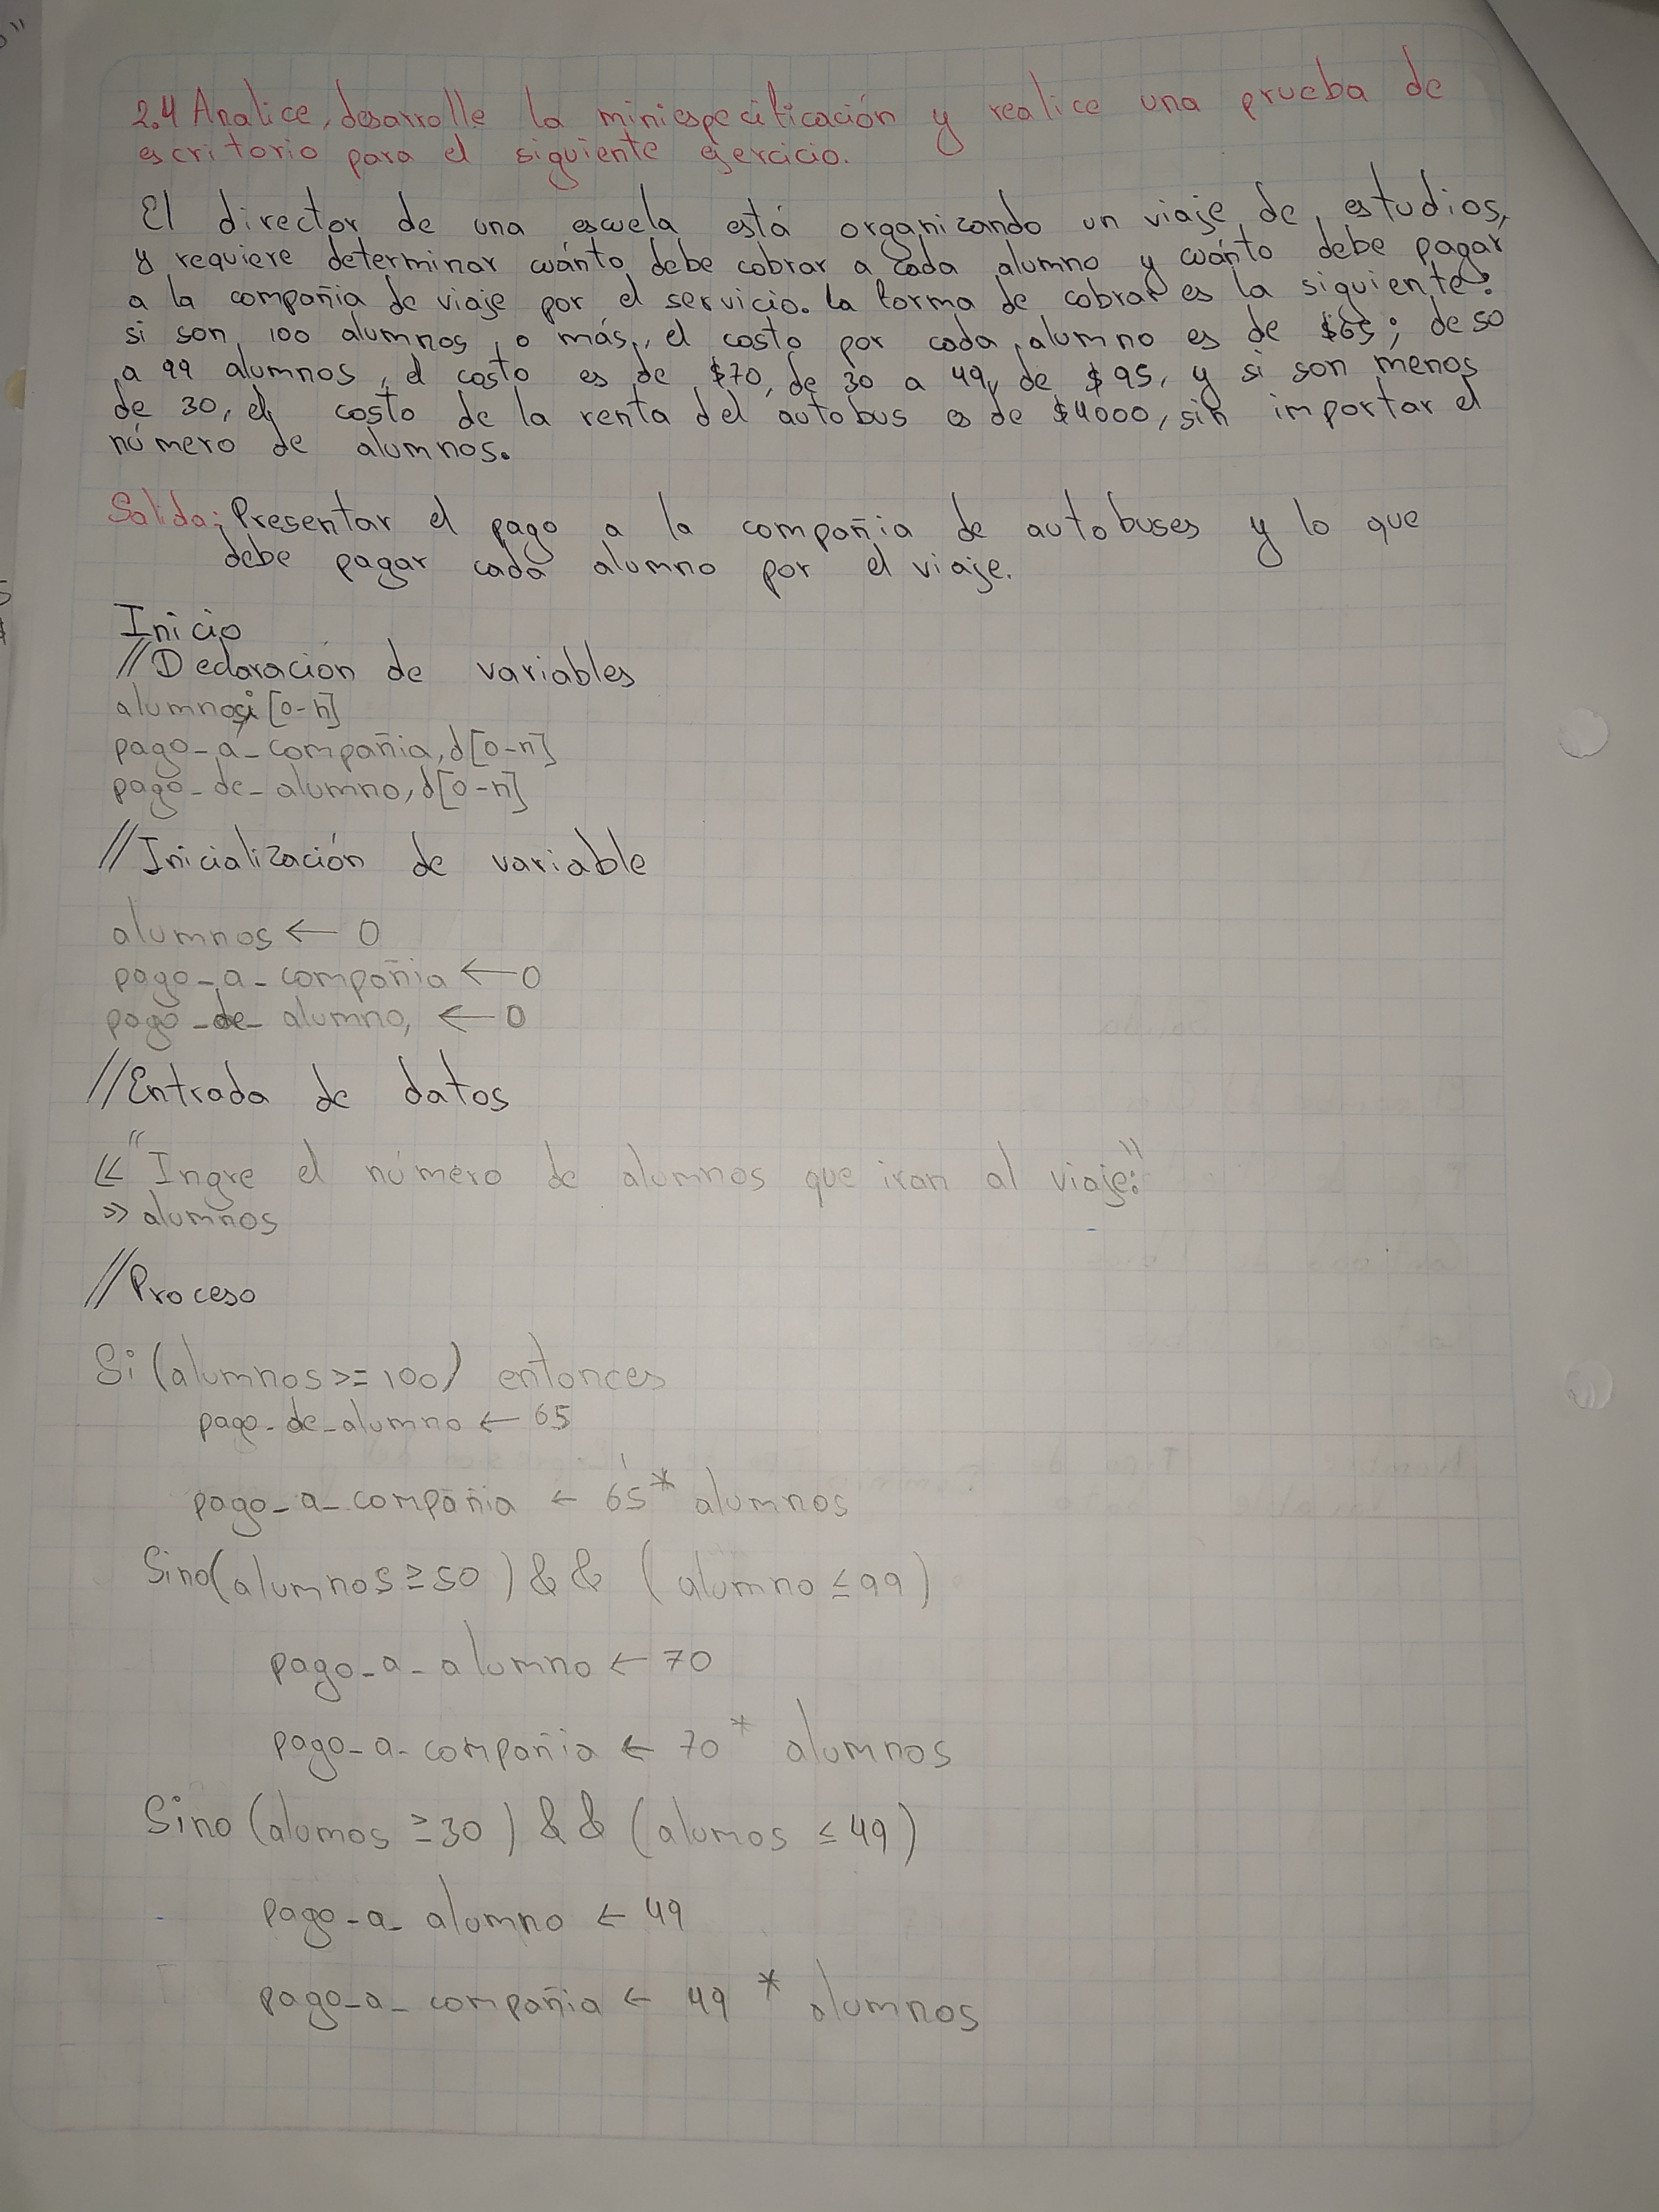 2.4 Analice, desarrolle la miniespecificación y realice una prueba de
escritorio para el siguiente ejercicio.
El director de una escuela está organizando un viaje de estudios,
y requiere determinar cuánto debe cobrar a cada alumno y cuánto debe pagar
a la compañia de viaje por el servicio. la forma de cobrar es la siguiente:
si son 100 alumnos o más, el costo por cada alumno es de $65; de 50
a 99 alumnos, el costo es de $70, de 30 a 49, de $95, y si son menos
de 30, el costo de la renta del autobus es de $4000, sin importar el
número de alumnos.
Salida: Presentar el pago a la compañia de autobuses y lo que
debe pagar cada alumno por el viaje.
Inicio
//Declaración de variables
alumnos,i[0-n]
pago_a_compañia,d[0-n]
pago_de_alumno,d[0-n]
//Inicialización de variable
alumnos ← 0
pago_a_compañia ← 0
pago_de_alumno, ← 0
//Entrada de datos
<< "Ingre el número de alumnos que iran al viaje:"
>> alumnos
//Proceso
Si (alumnos >= 100) entonces
pago_de_alumno ← 65
pago_a_compañia ← 65 * alumnos
Sino(alumnos ≥ 50) && (alumno ≤ 99)
pago_a_alumno ← 70
pago_a_compañia ← 70 * alumnos
Sino (alumos ≥ 30) && (alumos ≤ 49)
pago_a_alumno ← 49
pago_a_compañia ← 49 * alumnos